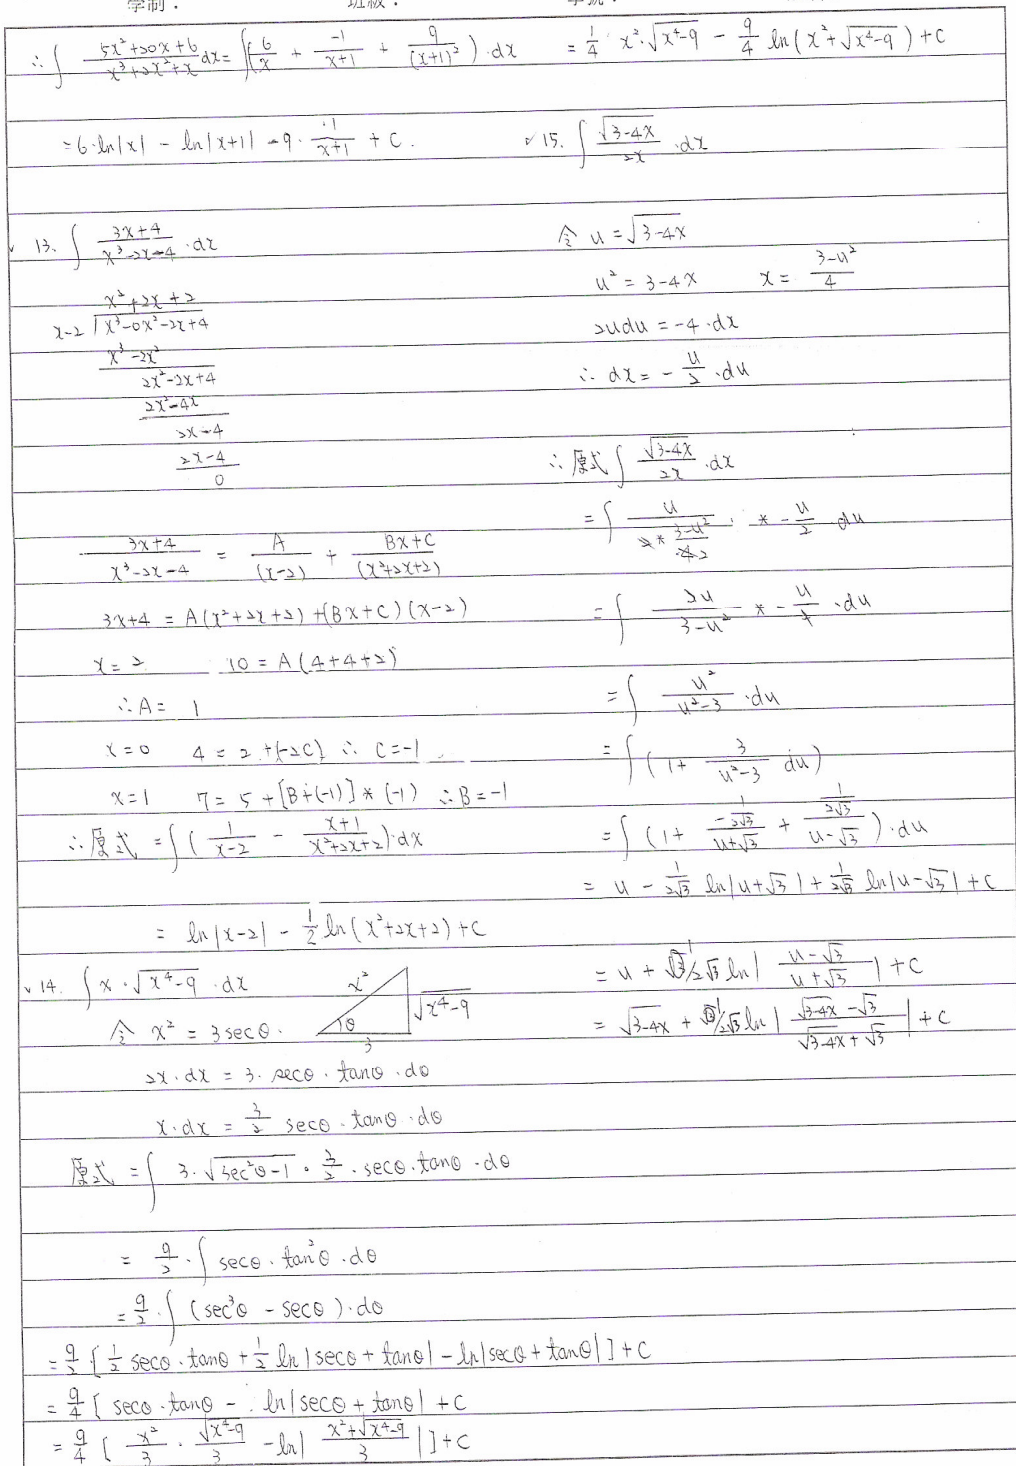 學制： 班級： 學號：
∴∫ (5x²+20x+6)/(x³+2x²+x) dx = ∫(6/x + -1/(x+1) + 9/(x+1)²)·dx
= 6·ln|x| - ln|x+1| - 9· 1/(x+1) + C.
13. ∫ (3x+4)/(x³-2x-4) ·dx
x²+2x+2
x-2 √x³-0x²-2x+4
x³-2x²
2x²-2x+4
2x²-4x
2x-4
2x-4
0
(3x+4)/(x³-2x-4) = A/(x-2) + (Bx+C)/(x²+2x+2)
3x+4 = A(x²+2x+2)+(Bx+C)(x-2)
x=2 10=A(4+4+2)
∴A= 1
x=0 4=2+(-2C) ∴ C=-1
x=1 7=5+[B+(-1)]*(-1) ∴B=-1
∴原式 = ∫( 1/(x-2) - (x+1)/(x²+2x+2) )·dx
= ln|x-2| - 1/2 ln(x²+2x+2)+C
14. ∫ x·√(x⁴-9) ·dx
x² √(x⁴-9) θ 3
令 x² = 3secθ.
2x·dx = 3·secθ·tanθ·dθ
x·dx = 3/2 secθ·tanθ·dθ
原式 = ∫ 3·√(sec²θ-1) · 3/2 ·secθ·tanθ·dθ
= 9/2 ·∫ secθ·tan²θ·dθ
= 9/2 ·∫ (sec³θ - secθ)·dθ
= 9/2 [ 1/2 secθ·tanθ + 1/2 ln|secθ+tanθ| - ln|secθ+tanθ| ] + C
= 9/4 [ secθ·tanθ - ln|secθ+tanθ| + C
= 9/4 [ x²/3 · √(x⁴-9)/3 - ln| (x²+√(x⁴-9))/3 | ] + C
= 1/4 x²·√(x⁴-9) - 9/4 ln(x²+√(x⁴-9)) + C
15. ∫ √(3-4x)/2x ·dx
令 u = √(3-4x)
u² = 3-4x x = (3-u²)/4
2udu = -4·dx
∴ dx = - u/2 ·du
∴原式 ∫ √(3-4x)/2x ·dx
= ∫ u/(2* (3-u²)/4 2) · * - u/2 du
= ∫ 2u/(3-u²) * - u/2 ·du
= ∫ u²/(u²-3) ·du
= ∫ (1 + 3/(u²-3) du)
= ∫ (1 + (-1/2√3)/(u+√3) + (1/2√3)/(u-√3) )·du
= u - 1/2√3 ln|u+√3| + 1/2√3 ln|u-√3| + C
= u + 1/2√3 ln| (u-√3)/(u+√3) | + C
= √(3-4x) + 1/2√3 ln| (√(3-4x) - √3)/(√(3-4x) + √3) | + C